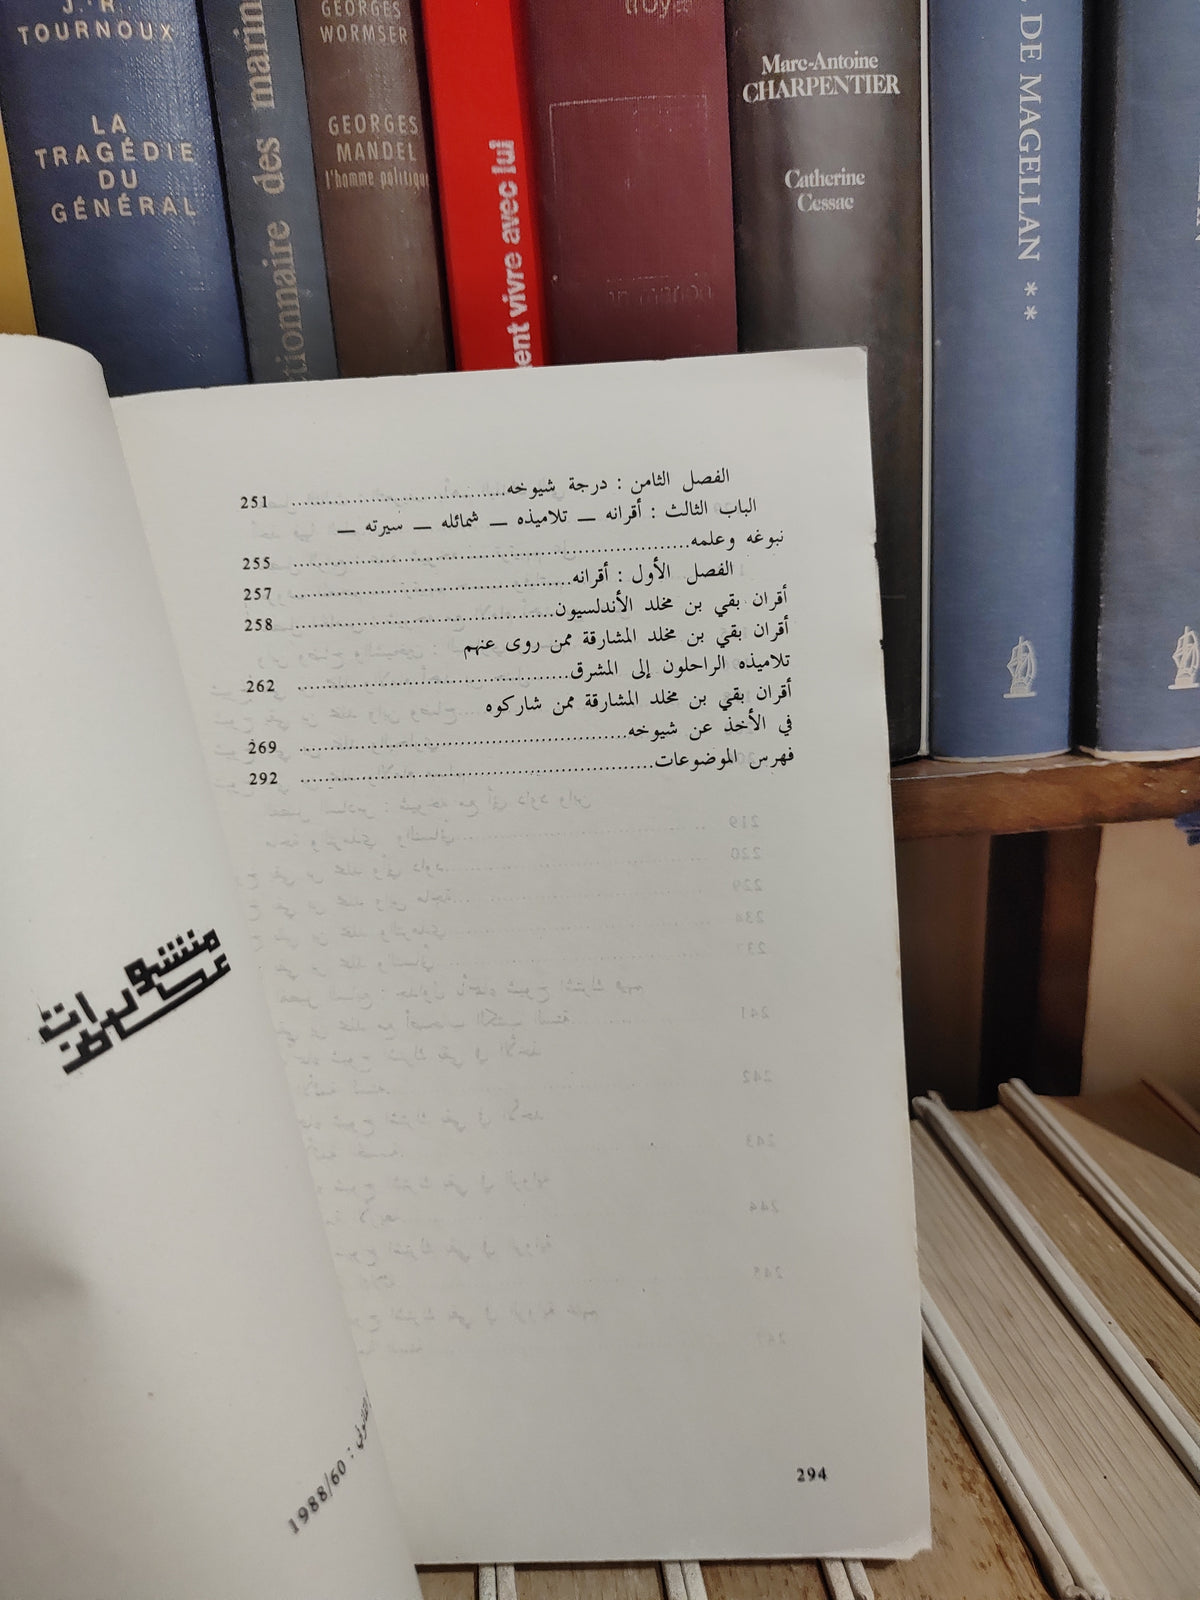 J.-R.
TOURNOUX
LA
TRAGÉDIE
DU
GÉNÉRAL
ctionnaire des marin
GEORGES
WORMSER
GEORGES
MANDEL
l'homme politique
ent vivre avec lui
troyat
Marc-Antoine
CHARPENTIER
Catherine
Cessac
DE MAGELLAN **
الفصل الثامن : درجة شيوخه 251
الباب الثالث : أقرانه — تلاميذه — شمائله — سيرته —
نبوغه وعلمه 255
الفصل الأول : أقرانه 257
أقران بقي بن مخلد الأندلسيون 258
أقران بقي بن مخلد المشارقة ممن روى عنهم
تلاميذه الراحلون إلى المشرق 262
أقران بقي بن مخلد المشارقة ممن شاركوه
في الأخذ عن شيوخه 269
فهرس الموضوعات 292
294
منشورات
عكاظ
القانوني : 1988/60